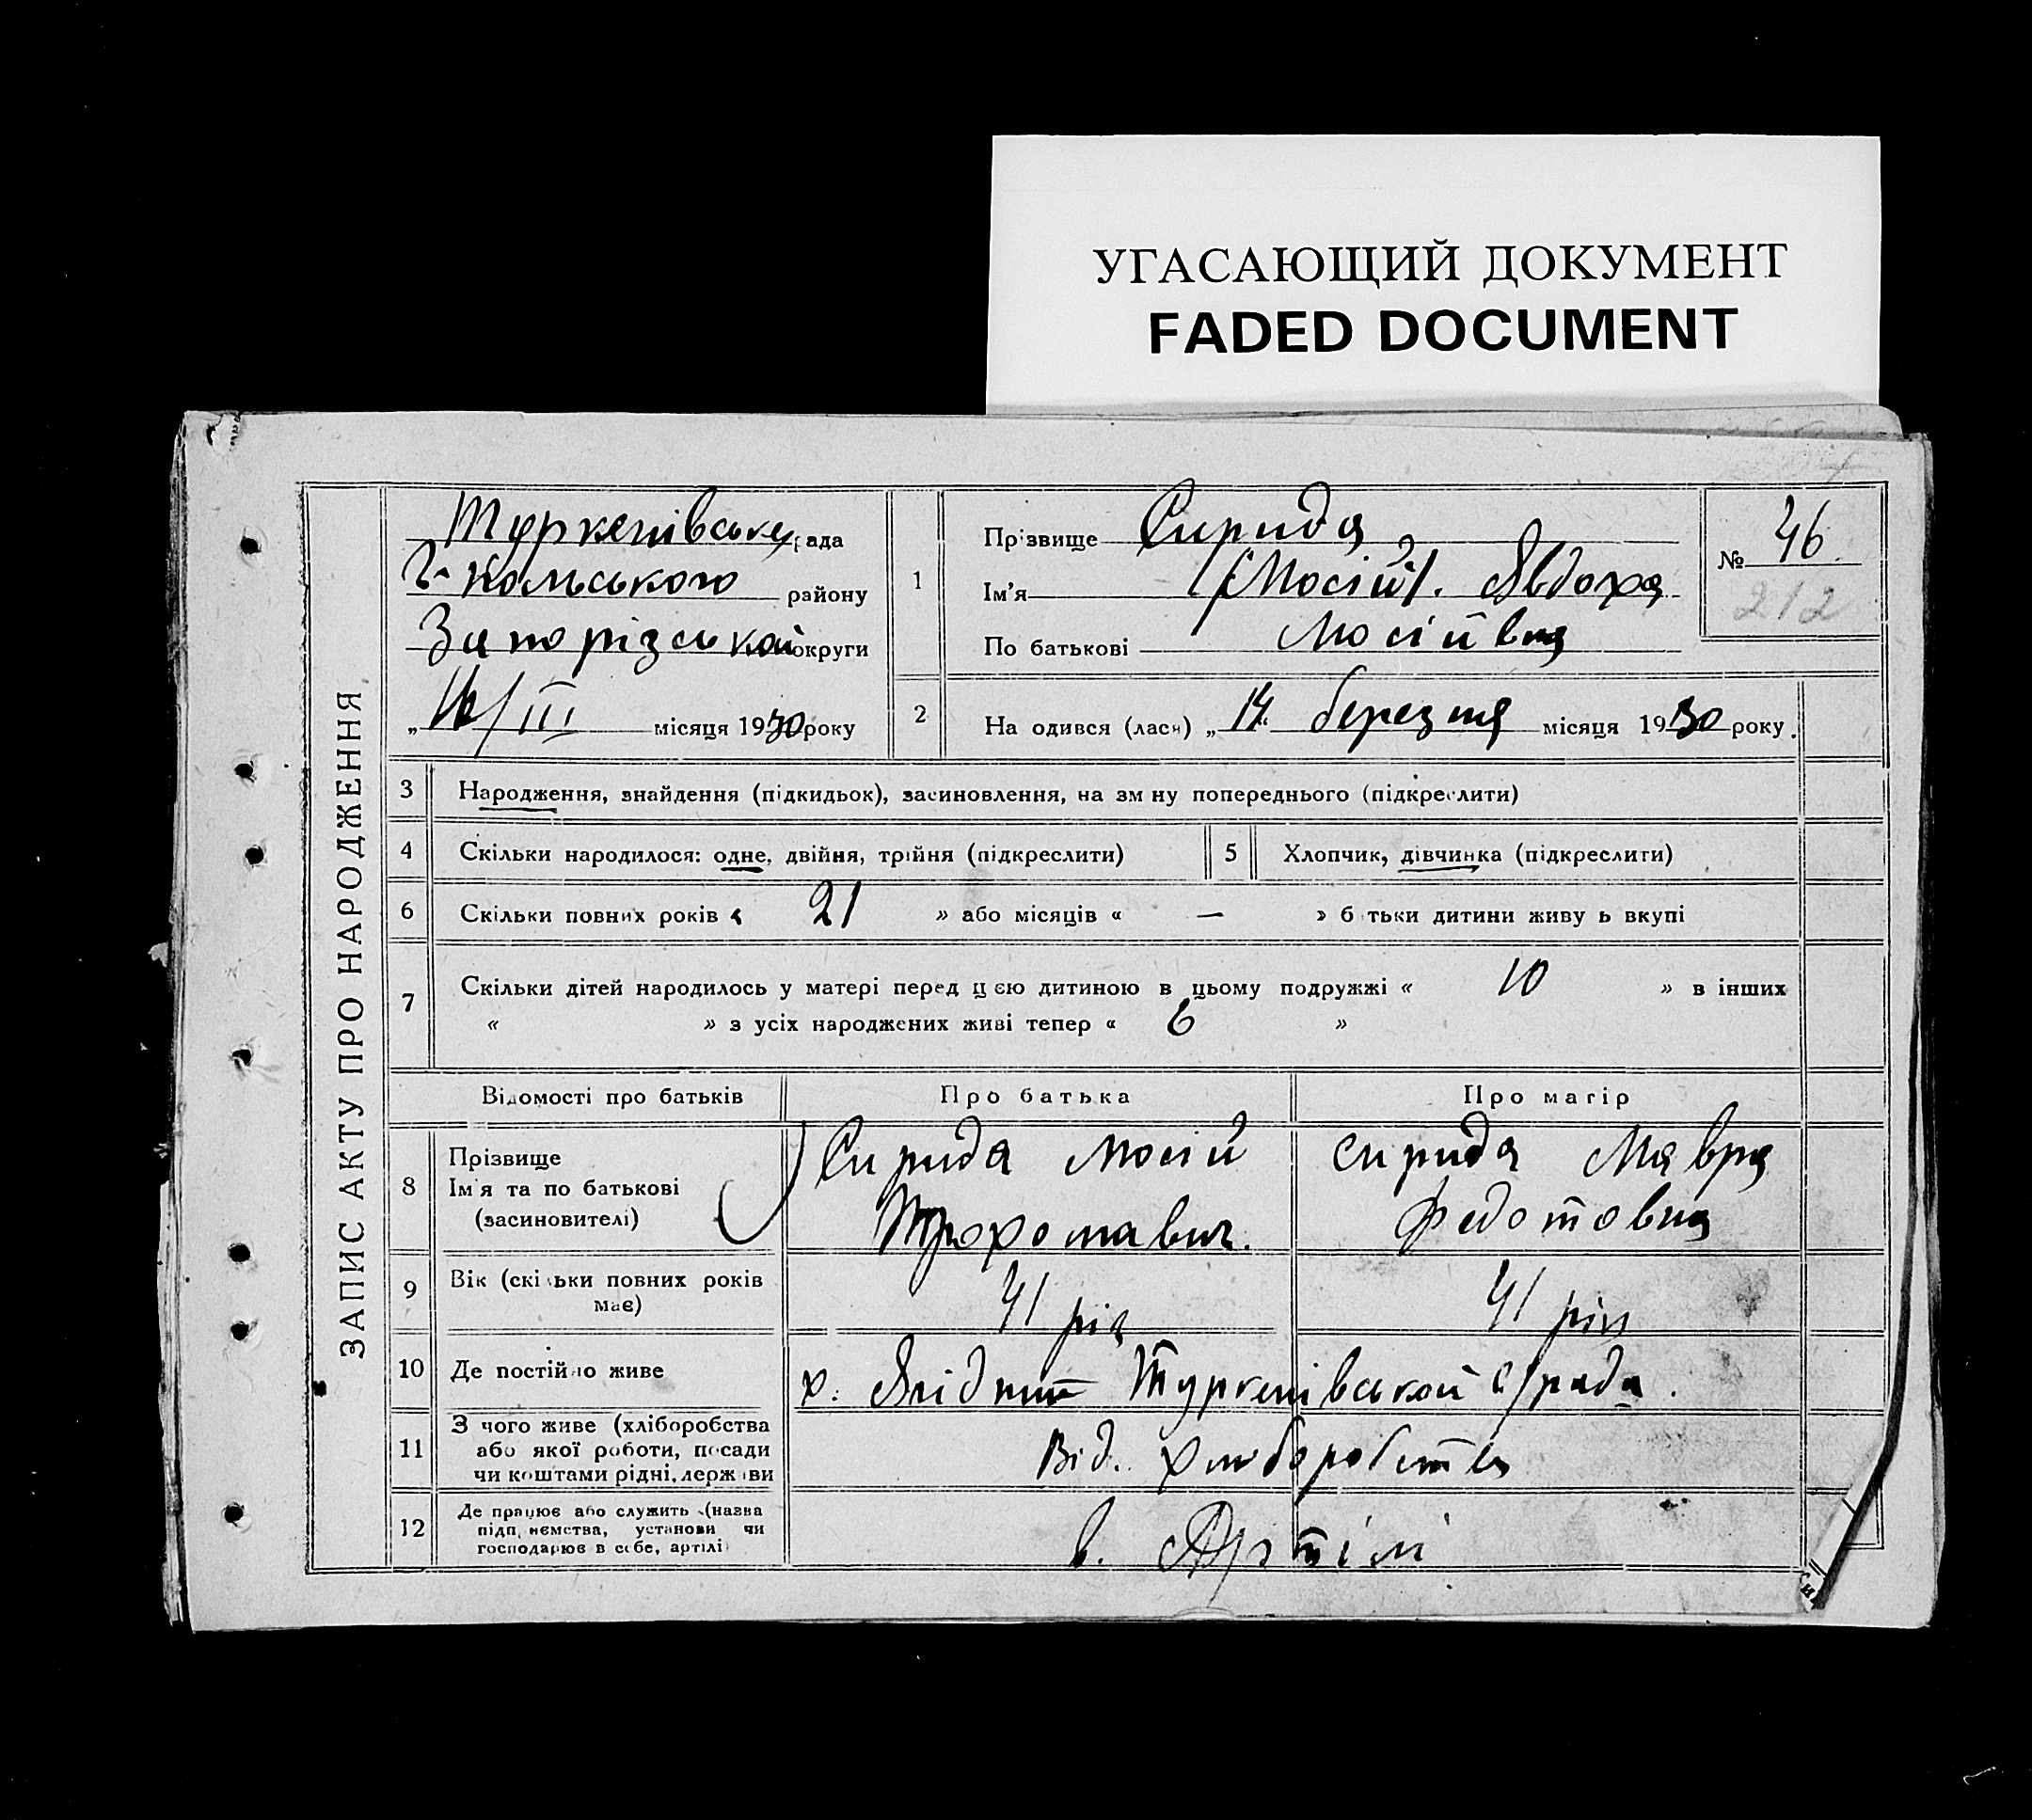 УГАСАЮЩИЙ ДОКУМЕНТ
FADED DOCUMENT
ЗАПИС АКТУ ПРО НАРОДЖЕННЯ
рада
району
Запорізькой округи
„16/III місяця 1930 року
1
Прізвище Сирида
Ім'я (Мосій). Явдоха
По батькові Мосійвна
№ 46
212
2
На одився (лася) „14. березня місяця 1930 року.
3 Народження, знайдення (підкидьок), засиновлення, на зм ну попереднього (підкреслити)
4 Скільки народилося: одне, двійня, трійня (підкреслити)
5 Хлопчик, дівчинка (підкреслити)
6 Скільки повних років « 21 » або місяців « — » б тьки дитини живу ь вкупі
7 Скільки дітей народилось у матері перед цією дитиною в цьому подружжі « 10 » в інших
« » з усіх народжених живі тепер « 6 »
Відомості про батьків Про батька Про матір
8 Прізвище
Ім'я та по батькові
(засиновителі)
Сирида Мосій
Сирида Мавра
Федотовна
9 Вік (скільки повних років
має)
41 рік
41 рік
10 Де постійно живе
х. с/рада.
11 З чого живе (хліборобства
або якої роботи, посади
чи коштами рідні, держ ви
Від. хліборобства
12 Де працює або служить (назва
підп иємства, установи чи
господарює в себе, артілі
в. Артілі